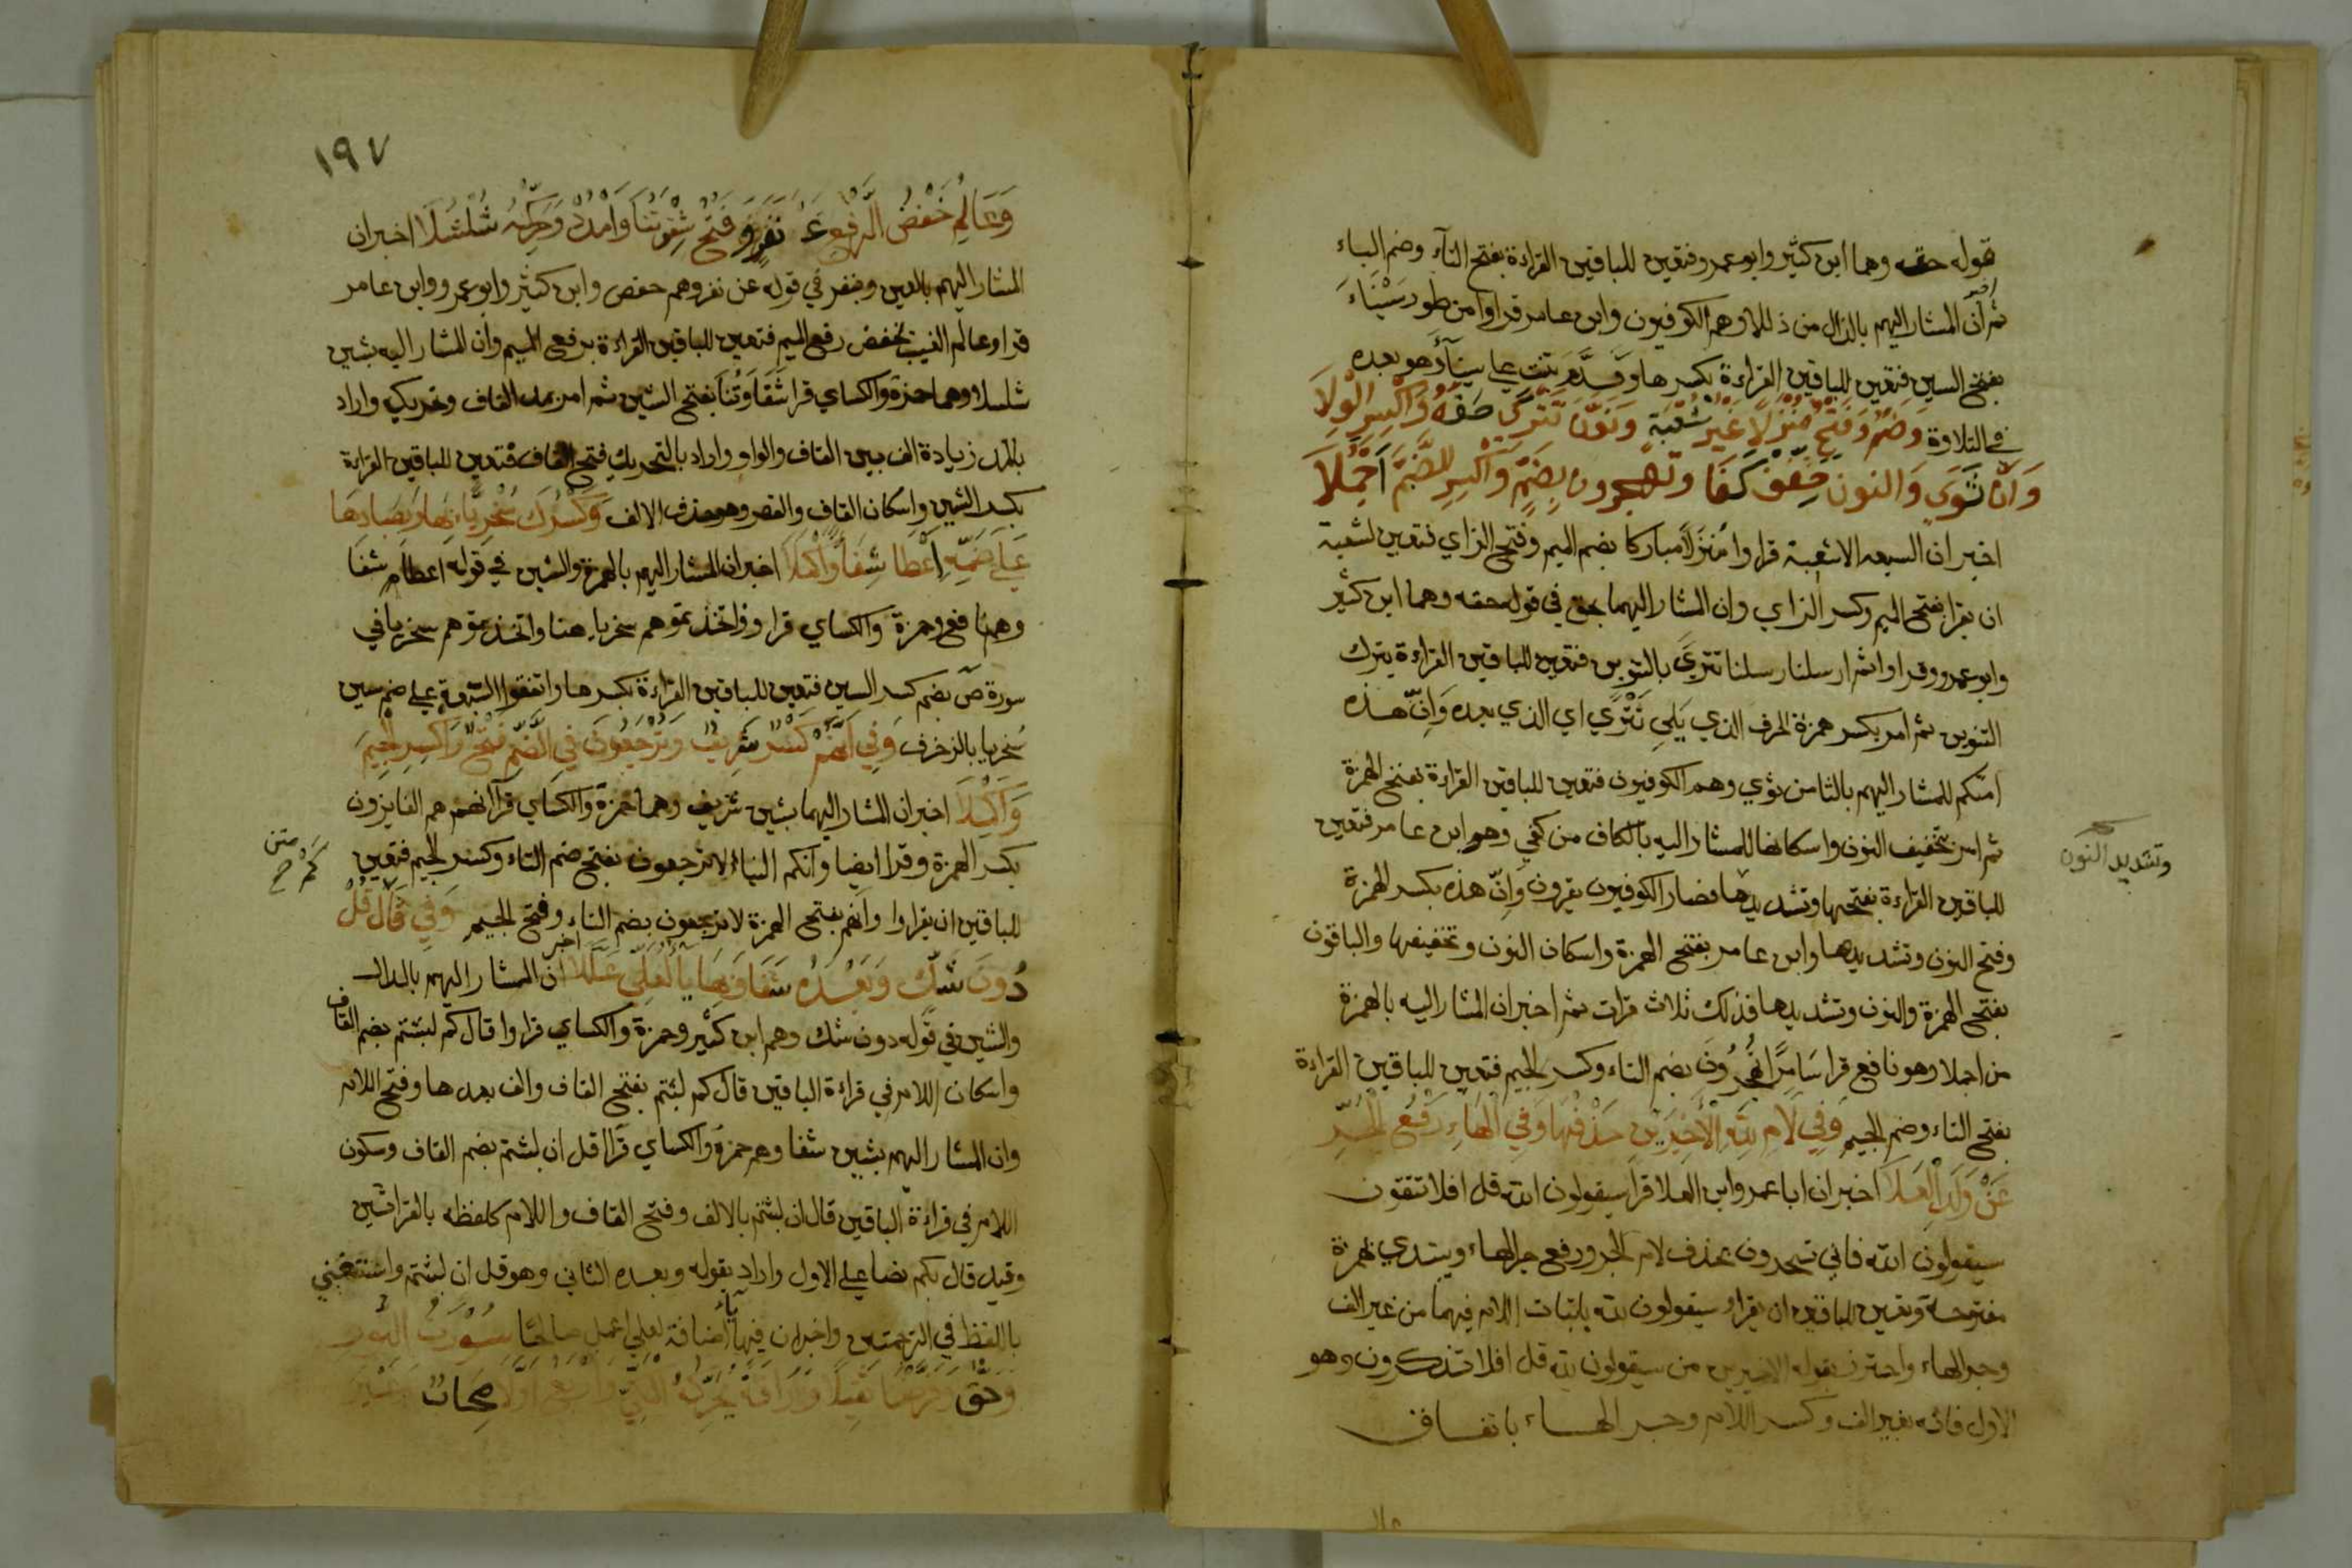 قوله حقه وهما ابن كثير وابو عمرو فتعين للباقين القراءة بفتح التآء وضم الباء
ثم اخبر أن المشار اليهم بالذال من ذللا وهم الكوفيون وابن عامر قراوا من طور سَيْنَاءَ
بفتح السين فتعين للباقين القراءة بكسرها وقدَّم تنبت علي سيناَء وهو بعده
في التلاوة وَضَمٌ وَفَتْحٌ مُنْزَلاً غَيْرَ شُعْبَةٍ وَنَوَّنَ تَتْرَى حَقُهُ وَاكْسِرِ الْوِلاَ
وَاَنَّ ثَوَى وَالنون خَفِّفْ كَفَا وتَهْجرون بِضَمٍّ وَاكْسِرِ الضَّمَّ اَجْمَلاَ
اخبر ان السبعه الا شعبة قراوا مُنْزَلاً مباركا بضم الميم وفتح الزاي فتعين لشعبة
ان يقرا بفتح الميم وكسر الزاي وان المشار اليهما بحق في قوله حقه وهما ابن كثير
وابو عمرو وقراوا ثم ارسلنا رسلنا تترىً بالتنوين فتعين للباقين القراءة بترك
التنوين ثم امر بكسر همزة الحرف الذي يَلِي تَتْرًي اي الذي بعده وَاِنَّ هذه
امتكم للمشار اليهم بالثا من ثوي وهم الكوفيون فتعين للباقين القراءة بفتح الهمزة
ثم امر بتخفيف النون واسكانها للمشار اليه بالكاف من كفي وهو ابن عامر فتعين
وتشديد النون
للباقين القراءة بفتحها وتشديدها فصار الكوفيون يقرون وَاِنّ هذه بكسر الهمزة
وفتح النون وتشديدها وابن عامر بفتح الهمزة واسكان النون وتخفيفها والباقون
بفتح الهمزة والنون وتشديدها فذلك ثلاث قرات ثم اخبر ان المشار اليه بالهمزة
من اجملا وهو نافع قرا سَامِرًا تُهْجِرُونَ بضم التاء وكسر الجيم فتعين للباقين القراءة
بفتح التاء وضم الجيم وَفِي لاَمِ لِلّهِ الأَخِيرَيْنِ حَذْفُهَا وَفِي الْهَاءِ رَفْعُ الْجَرِّ
عَنْ وَلَدِ الْعَلاَ اخبر ان ابا عمرو ابن العلا قرا سيقولون الله قل افلا تتقون
سيقولون الله فاني تسحرون بحذف لام الجر ورفع جر الهاء ويبتدي بهمزة
مفتوحة وتعين للباقين ان يقراو سيقولون لله باثبات اللام فيهما من غير الف
وجر الهاء واحترز بقوله الاخيرين من سيقولون لله قل افلا تذكرون وهو
الاول فانه بغير الف وكسر اللام وجر الهاء باتفاق
١٩٧
وَعَالِمِ خَفْضُ الرَّفْعِ عَنْ نَفَرٍ وَفَتْحُ شِقْوَتُنَا وَامْدُدْ وَحَرِّكْهُ شُلْشُلاَ اخبر ان
المشار اليهم بالعين وبنفر في قوله عن نفر وهم حفص وابن كثير وابو عمرو وابن عامر
قراو عالم الغيب بخفض رفع الميم فتعين للباقين القراءة برفع الميم وان المشار اليه بشين
شلشلا وهما حمزة والكساي قرا شَقَاوَتُنَا بفتح الشين ثم امر بمد القاف وتحريك واراد
بالمد زيادة الف بين القاف والواو واراد بالتحريك فتح القاف فتعين للباقين القراءة
بكسر الشين واسكان القاف والقصر وهو حذف الالف وَكَسْرُكَ سُخْرِيًّا بِهَا وَبِصَادِهَا
عَلَى ضَمِّهِ اَعْطَا شِفَاءً وَأَكْمَلاَ اخبر ان المشار اليهم بالهمزة والشين في قوله اعطا شفا
وهم نافع وحمزة والكساي قراو فاتخذتموهم سخريا هنا واتخذتموهم سخريا في
سورة صٓ بضم كسر السين فتعين للباقين القراءة بكسرها واتفقوا السبعة علي ضم سين
سُخريا بالزخرف وَفِي اَنَّهُمْ كَسْرٌ شَرِيفٌ وَتُرْجَعُونَ فِي الضَّمِّ فَتْحٌ وَاكْسِرِ الْجِيمَ
وَاكْمِلاَ اخبر ان المشار اليهما بشين شريف وهما حمزة والكساي قرآ انهم هم الفايزون
بكسر الهمزة وقرا ايضا وانكم الينا لا ترجعون بفتح ضم التاء وكسر الجيم فتعين
للباقين ان يقراوا وانهم بفتح الهمزة لا ترجعون بضم التاء وفتح الجيم وَفِي قَالَ قُلْ
دُونَ شَكٍّ وَبَعْدَهُ شَفَا وَبِهَا يَا لَعَلِّي عَلَّلاَ اخبر ان المشار اليهم بالدال
والشين في قوله دون شك وهم ابن كثير وحمزة والكساي قراوا قال كم لبثتم بضم القاف
واسكان اللام في قراءة الباقين قال كم لبثتم بفتح القاف والف بعدها وفتح اللام
وان المشار اليهم بشين شفا وهم حمزة والكساي قرآ قل ان لبثتم بضم القاف وسكون
اللام في قراءة الباقين قال ان لبثتم بالالف وفتح القاف واللام كلفظه بالقراتين
وقيد قال بكم نصا علي الاول واراد بقوله وبعده الثاني وهو قل ان لبثتم واستغني
باللفظ في الترجمتين واخبر ان فيها ياء اضافة لعلي اعمل صالحا سورة النور
وَحَقٌّ وَفَرَّضْنَا ثَقِيلاً وَرَأْفَةٌ يُحَرِّكُهُ الْمَكِّي وَأَرْبَعُ أَوَّلاَ صِحَابٌ